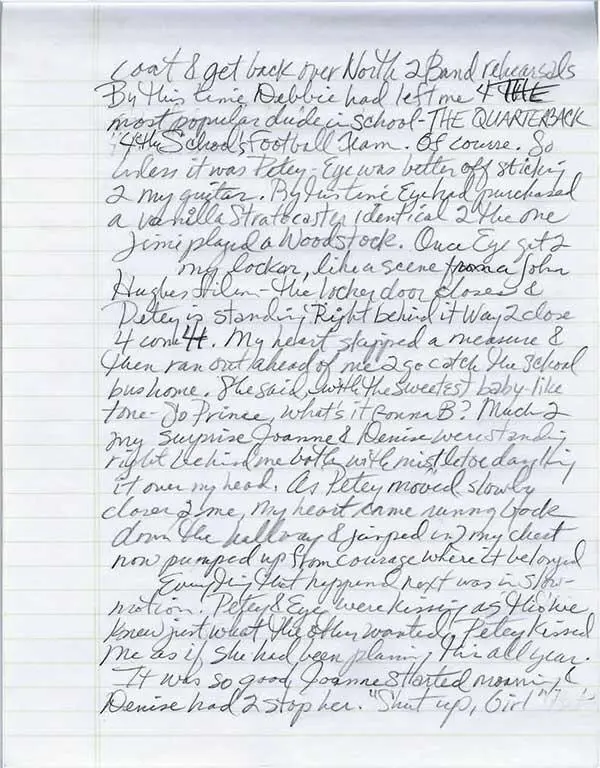 coat & get back over North 2 Band rehearsals
By this time Debbie had left me 4 THE
most popular dude in school - THE QUARTERBACK
4 the School's Football Team. Of course. So
unless it was Petey - Eye was better off sticking
2 my guitar. By this time Eye had purchased
a vanilla Stratocaster identical 2 the one
Jimi played @ Woodstock. Once Eye get 2
my locker, like a scene from a John
Hughes film - the locker door closes &
Petey is standing Right behind it Way 2 close
4 comf4t. My heart skipped a measure &
then ran out ahead of me 2 go catch the school
bus home. She said, with the sweetest baby-like
tone - Yo Prince, what's it gonna B? Much 2
my surprise Joanne & Denise were standing
right behind me both with mistletoe dangling
it over my head. As Petey moved slowly
closer 2 me, my heart came running back
down the hallway & jumped in 2 my chest
now pumped up from courage where it belonged
Everything that happened next was in slow-
motion. Petey & Eye were kissing as tho we
knew just what the other wanted. Petey kissed
me as if she had been planing this all year.
It was so good Joanne started moaning &
Denise had 2 stop her. "Shut up, Girl"